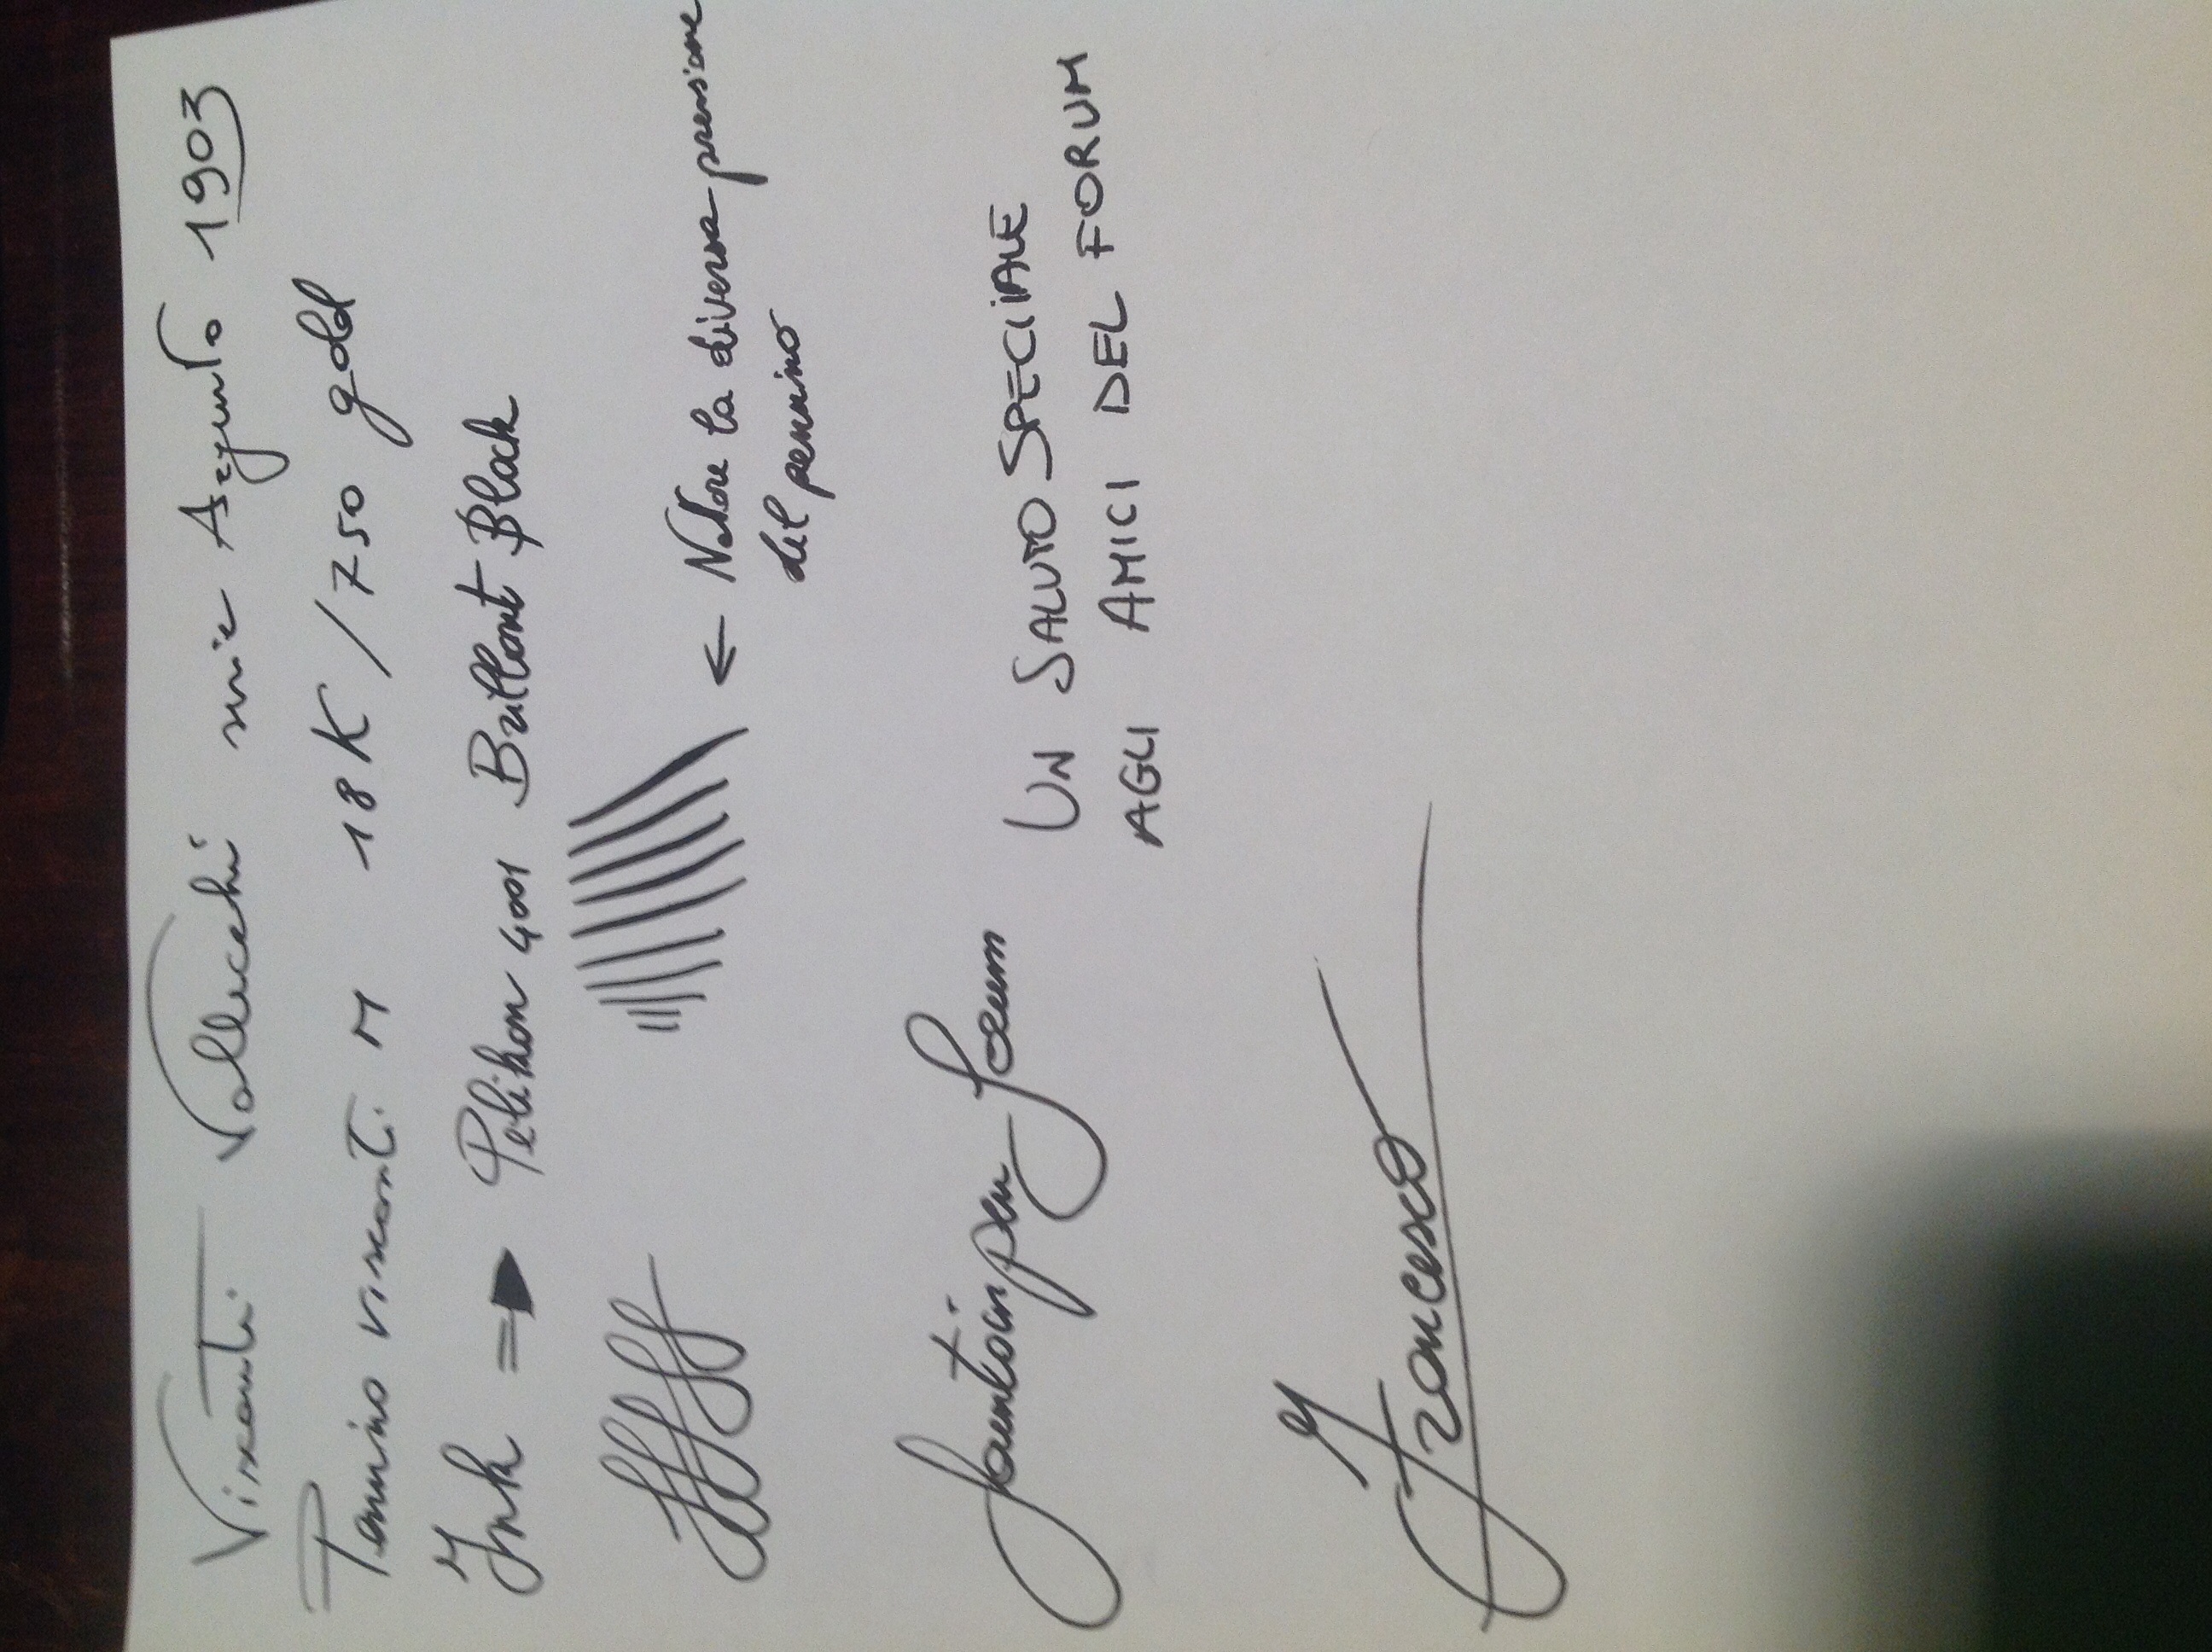 Visconti Vallecchi mie Azzurro 1903
Pennino Visconti M 18K/750 gold
Ink ⇒ Pelikan 4001 Brillant Black
ffffff ← Notare la diversa pressione
del pennino
fountainpen forum
UN SALUTO SPECIALE
AGLI AMICI DEL FORUM
Francesco